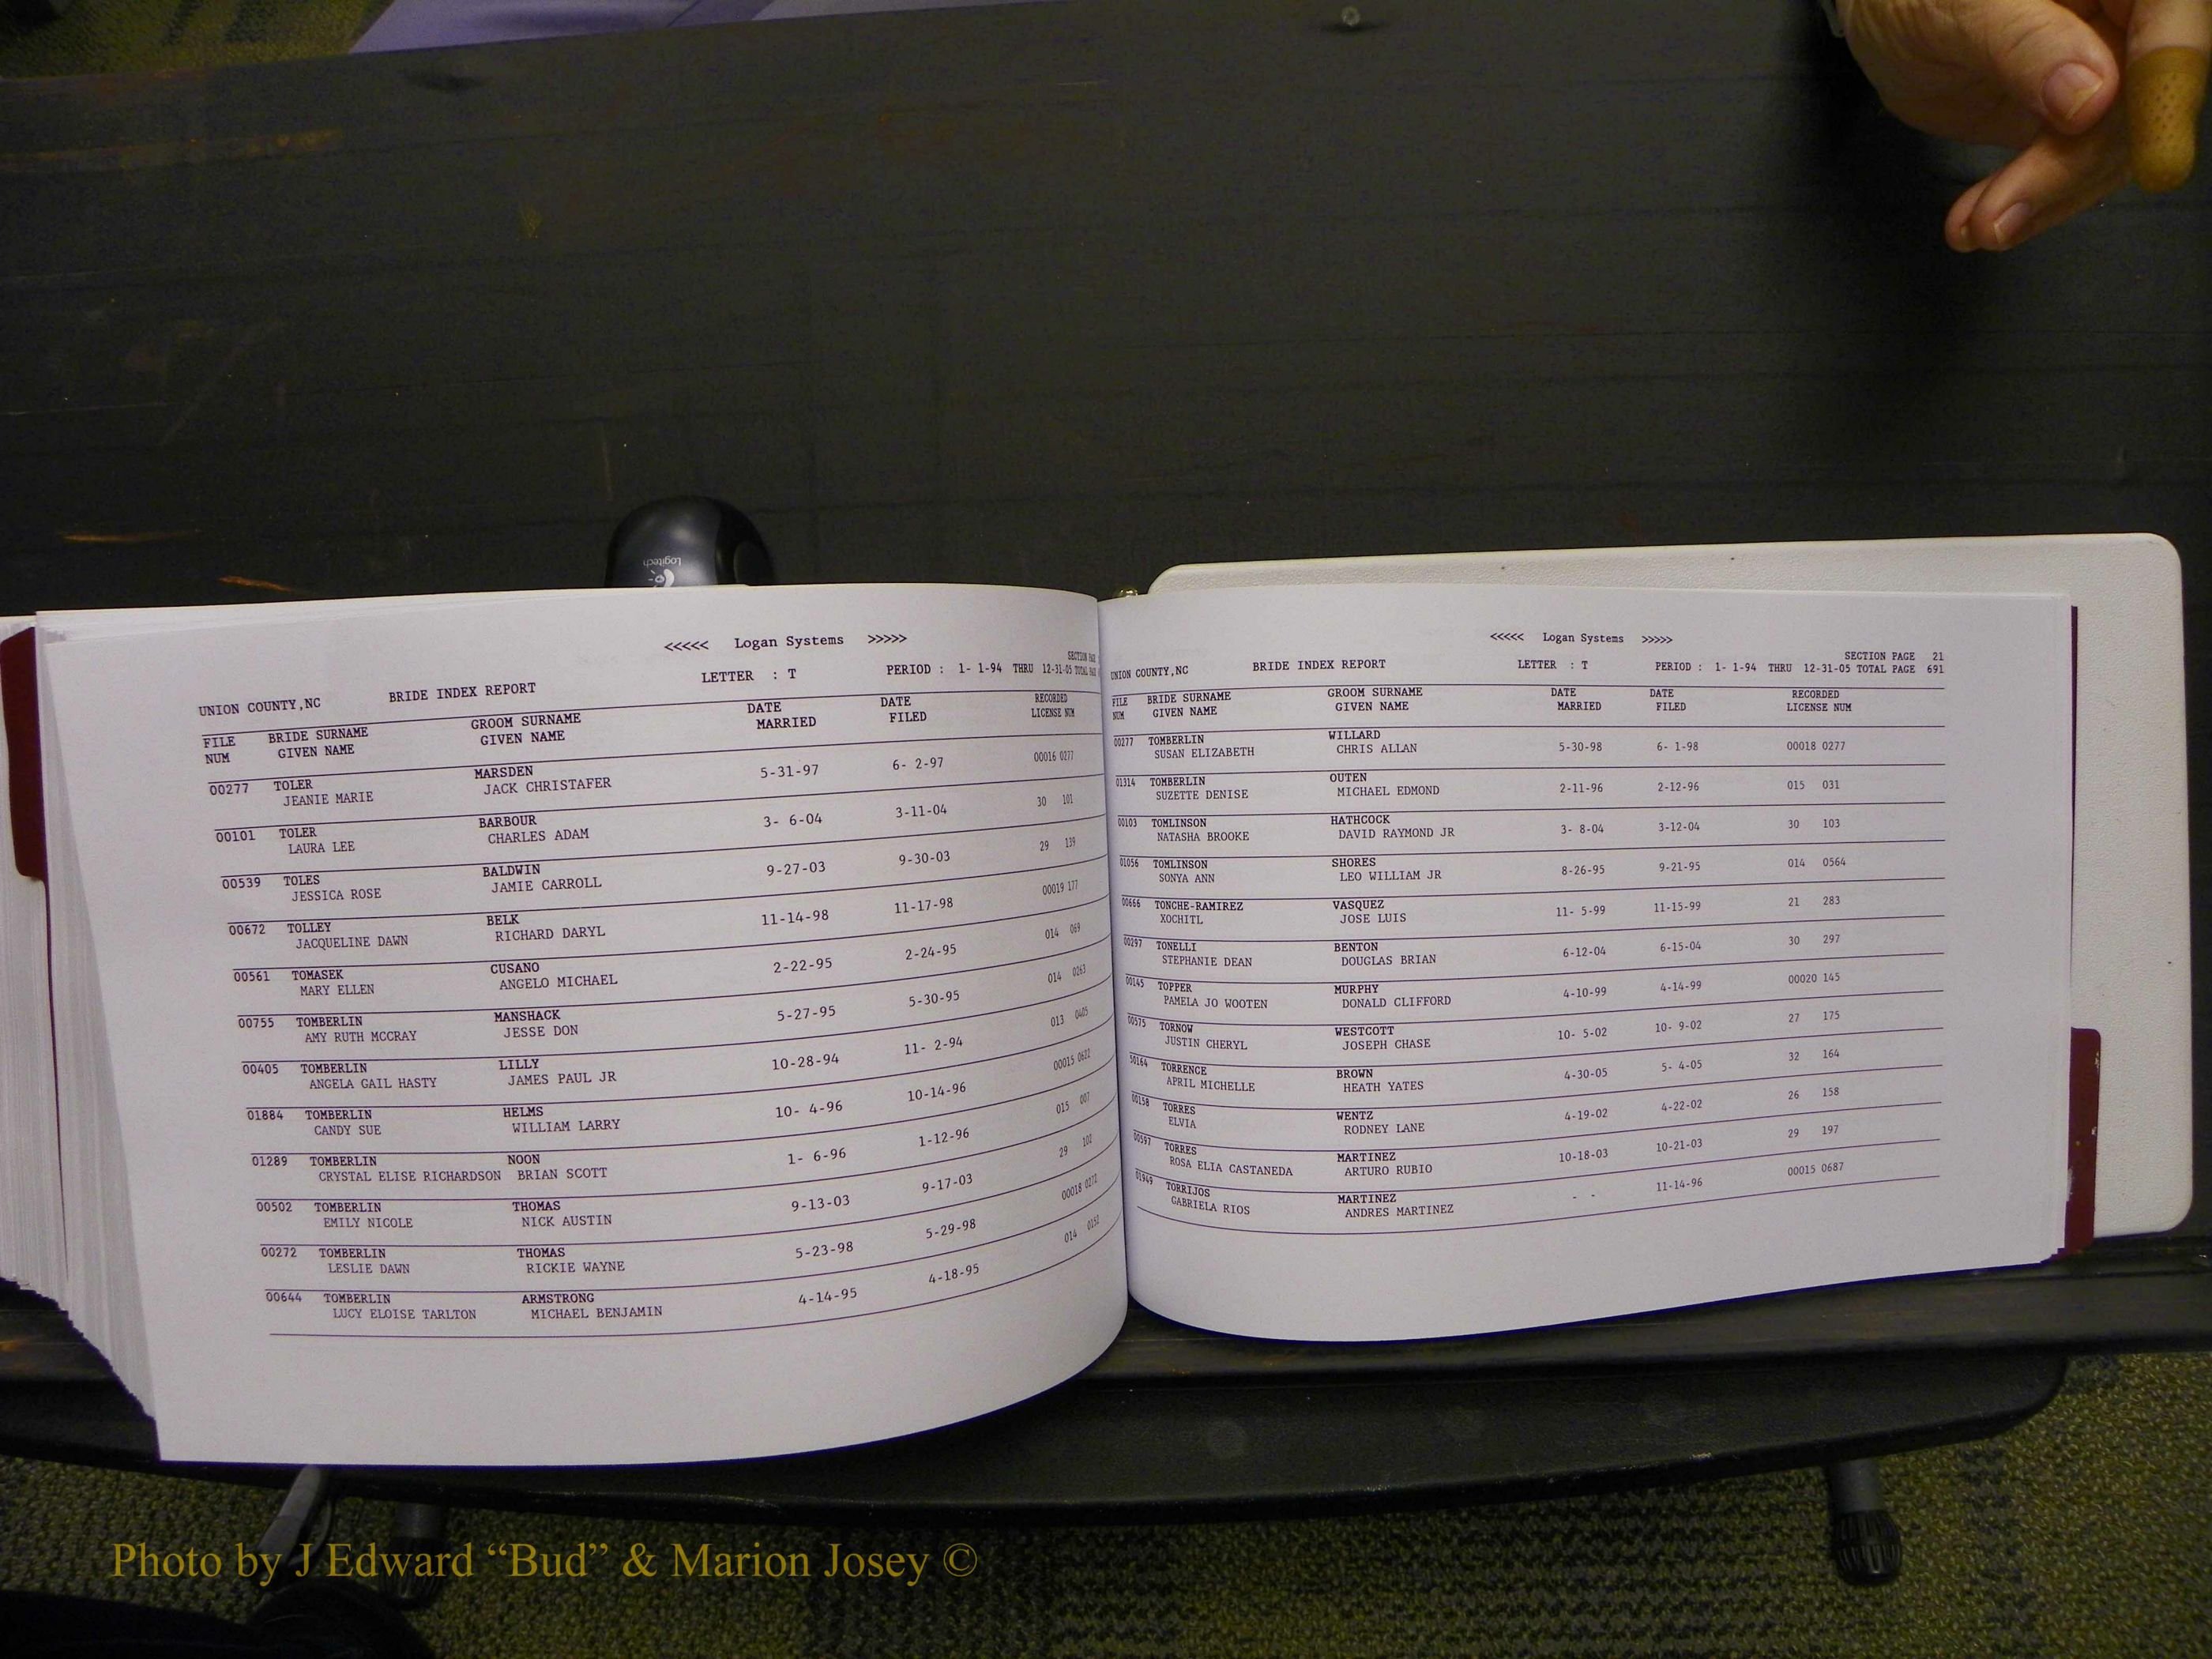 Logitech
<<<<< Logan Systems >>>>>
SECTION PAGE
UNION COUNTY,NC BRIDE INDEX REPORT LETTER : T PERIOD : 1- 1-94 THRU 12-31-05 TOTAL PAGE
FILE BRIDE SURNAME GROOM SURNAME DATE DATE RECORDED
NUM GIVEN NAME GIVEN NAME MARRIED FILED LICENSE NUM
00277 TOLER MARSDEN 5-31-97 6- 2-97 00016 0277
JEANIE MARIE JACK CHRISTAFER
00101 TOLER BARBOUR 3- 6-04 3-11-04 30 101
LAURA LEE CHARLES ADAM
00539 TOLES BALDWIN 9-27-03 9-30-03 29 139
JESSICA ROSE JAMIE CARROLL
00672 TOLLEY BELK 11-14-98 11-17-98 00019 177
JACQUELINE DAWN RICHARD DARYL
00561 TOMASEK CUSANO 2-22-95 2-24-95 014 069
MARY ELLEN ANGELO MICHAEL
00755 TOMBERLIN MANSHACK 5-27-95 5-30-95 014 0263
AMY RUTH MCCRAY JESSE DON
00405 TOMBERLIN LILLY 10-28-94 11- 2-94 013 0405
ANGELA GAIL HASTY JAMES PAUL JR
01884 TOMBERLIN HELMS 10- 4-96 10-14-96 00015 0622
CANDY SUE WILLIAM LARRY
01289 TOMBERLIN NOON 1- 6-96 1-12-96 015 007
CRYSTAL ELISE RICHARDSON BRIAN SCOTT
00502 TOMBERLIN THOMAS 9-13-03 9-17-03 29 102
EMILY NICOLE NICK AUSTIN
00272 TOMBERLIN THOMAS 5-23-98 5-29-98 00018 0272
LESLIE DAWN RICKIE WAYNE
00644 TOMBERLIN ARMSTRONG 4-14-95 4-18-95 014 0152
LUCY ELOISE TARLTON MICHAEL BENJAMIN
<<<<< Logan Systems >>>>>
SECTION PAGE 21
UNION COUNTY,NC BRIDE INDEX REPORT LETTER : T PERIOD : 1- 1-94 THRU 12-31-05 TOTAL PAGE 691
FILE BRIDE SURNAME GROOM SURNAME DATE DATE RECORDED
NUM GIVEN NAME GIVEN NAME MARRIED FILED LICENSE NUM
00277 TOMBERLIN WILLARD 5-30-98 6- 1-98 00018 0277
SUSAN ELIZABETH CHRIS ALLAN
01314 TOMBERLIN OUTEN 2-11-96 2-12-96 015 031
SUZETTE DENISE MICHAEL EDMOND
00103 TOMLINSON HATHCOCK 3- 8-04 3-12-04 30 103
NATASHA BROOKE DAVID RAYMOND JR
01056 TOMLINSON SHORES 8-26-95 9-21-95 014 0564
SONYA ANN LEO WILLIAM JR
00666 TONCHE-RAMIREZ VASQUEZ 11- 5-99 11-15-99 21 283
XOCHITL JOSE LUIS
00297 TONELLI BENTON 6-12-04 6-15-04 30 297
STEPHANIE DEAN DOUGLAS BRIAN
00145 TOPPER MURPHY 4-10-99 4-14-99 00020 145
PAMELA JO WOOTEN DONALD CLIFFORD
00575 TORNOW WESTCOTT 10- 5-02 10- 9-02 27 175
JUSTIN CHERYL JOSEPH CHASE
50164 TORRENCE BROWN 4-30-05 5- 4-05 32 164
APRIL MICHELLE HEATH YATES
00158 TORRES WENTZ 4-19-02 4-22-02 26 158
ELVIA RODNEY LANE
00597 TORRES MARTINEZ 10-18-03 10-21-03 29 197
ROSA ELIA CASTANEDA ARTURO RUBIO
01949 TORRIJOS MARTINEZ - - 11-14-96 00015 0687
GABRIELA RIOS ANDRES MARTINEZ
Photo by J Edward “Bud” & Marion Josey ©